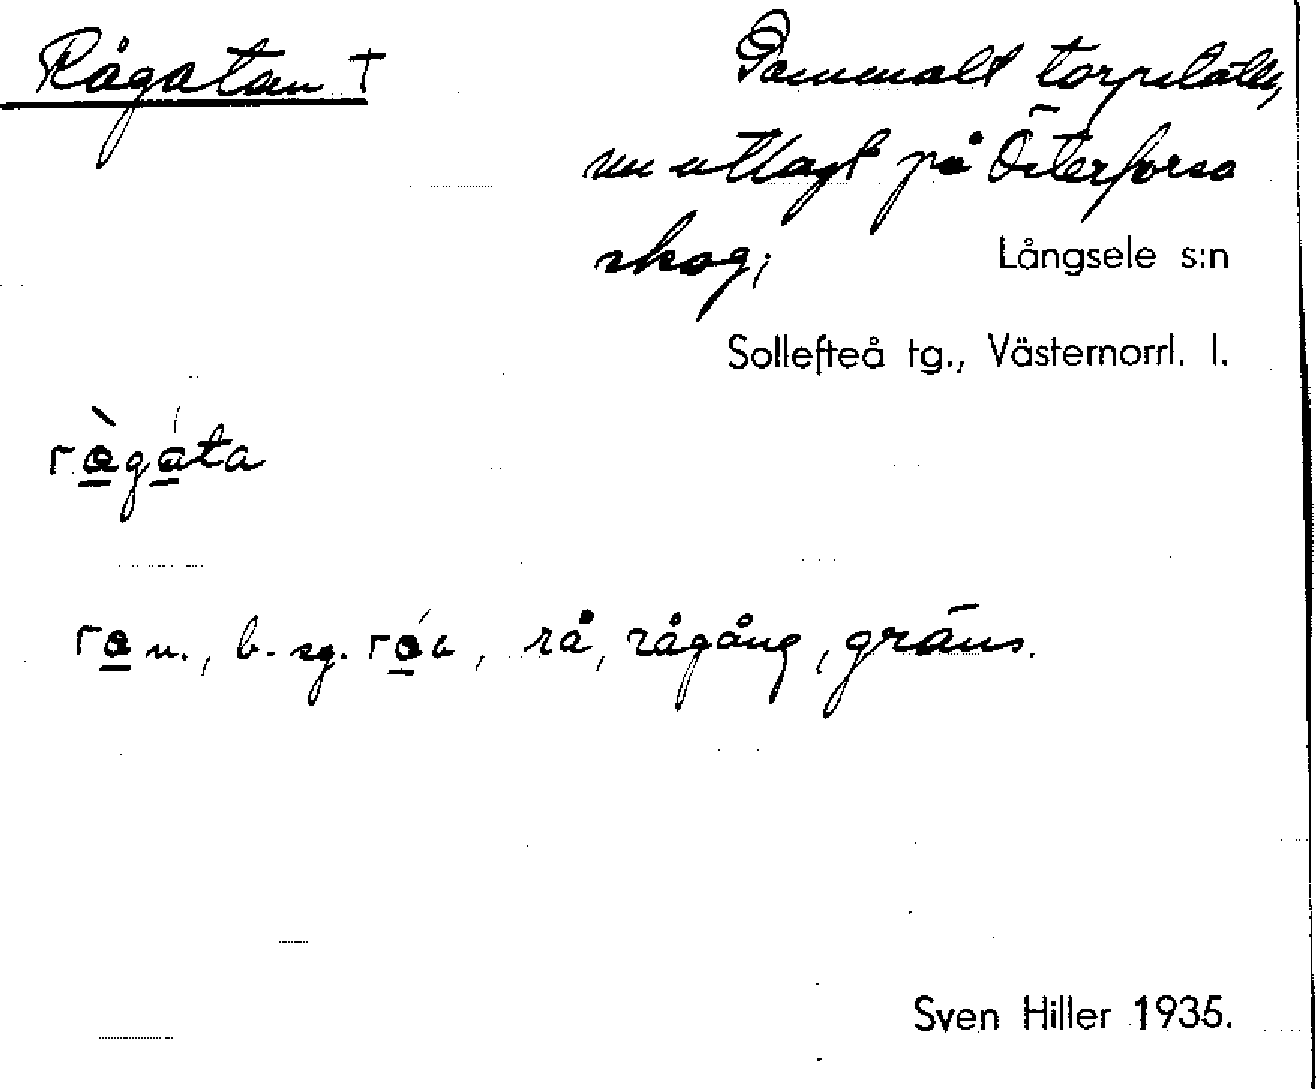 Rågatan †
Gammalt torpställe,
nu utlagt på Österforsa
skog;
Långsele s:n
Sollefteå tg., Västernorrl. l.
ràgáta
ra n., b. sg. ráa, rå, rågång, gräns.
Sven Hiller 1935.